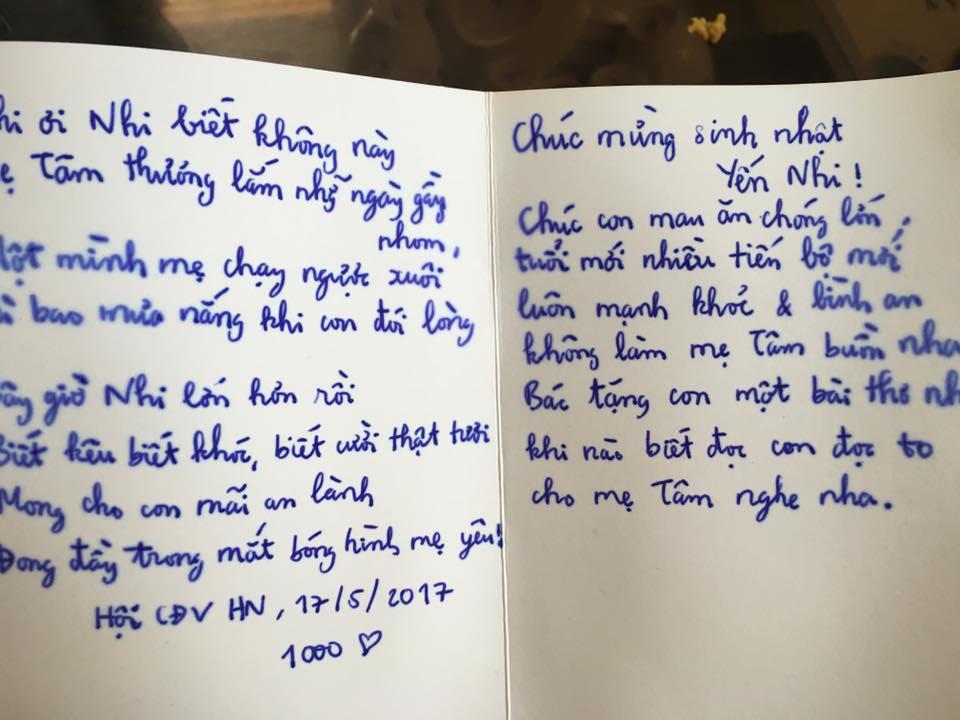 hi ơi Nhi biết không này
ẹ Tâm thương lắm nhỡ ngày gầy
nhom,
ột mình mẹ chạy ngược xuôi
ì bao mưa nắng khi con đói lòng
ây giờ Nhi lớn hơn rồi
Biết kêu biết khóc, biết cười thật tươi
Mong cho con mãi an lành
Đong đầy trong mắt bóng hình mẹ yêu!
Hội CĐV HN, 17/5/2017
1000 ♡
Chúc mừng sinh nhật
Yến Nhi!
Chúc con mau ăn chóng lớn,
tuổi mới nhiều tiến bộ mới
luôn mạnh khoẻ & bình an
không làm mẹ Tâm buồn nha
Bác tặng con một bài thơ nh
khi nào biết đọc con đọc to
cho mẹ Tâm nghe nha.